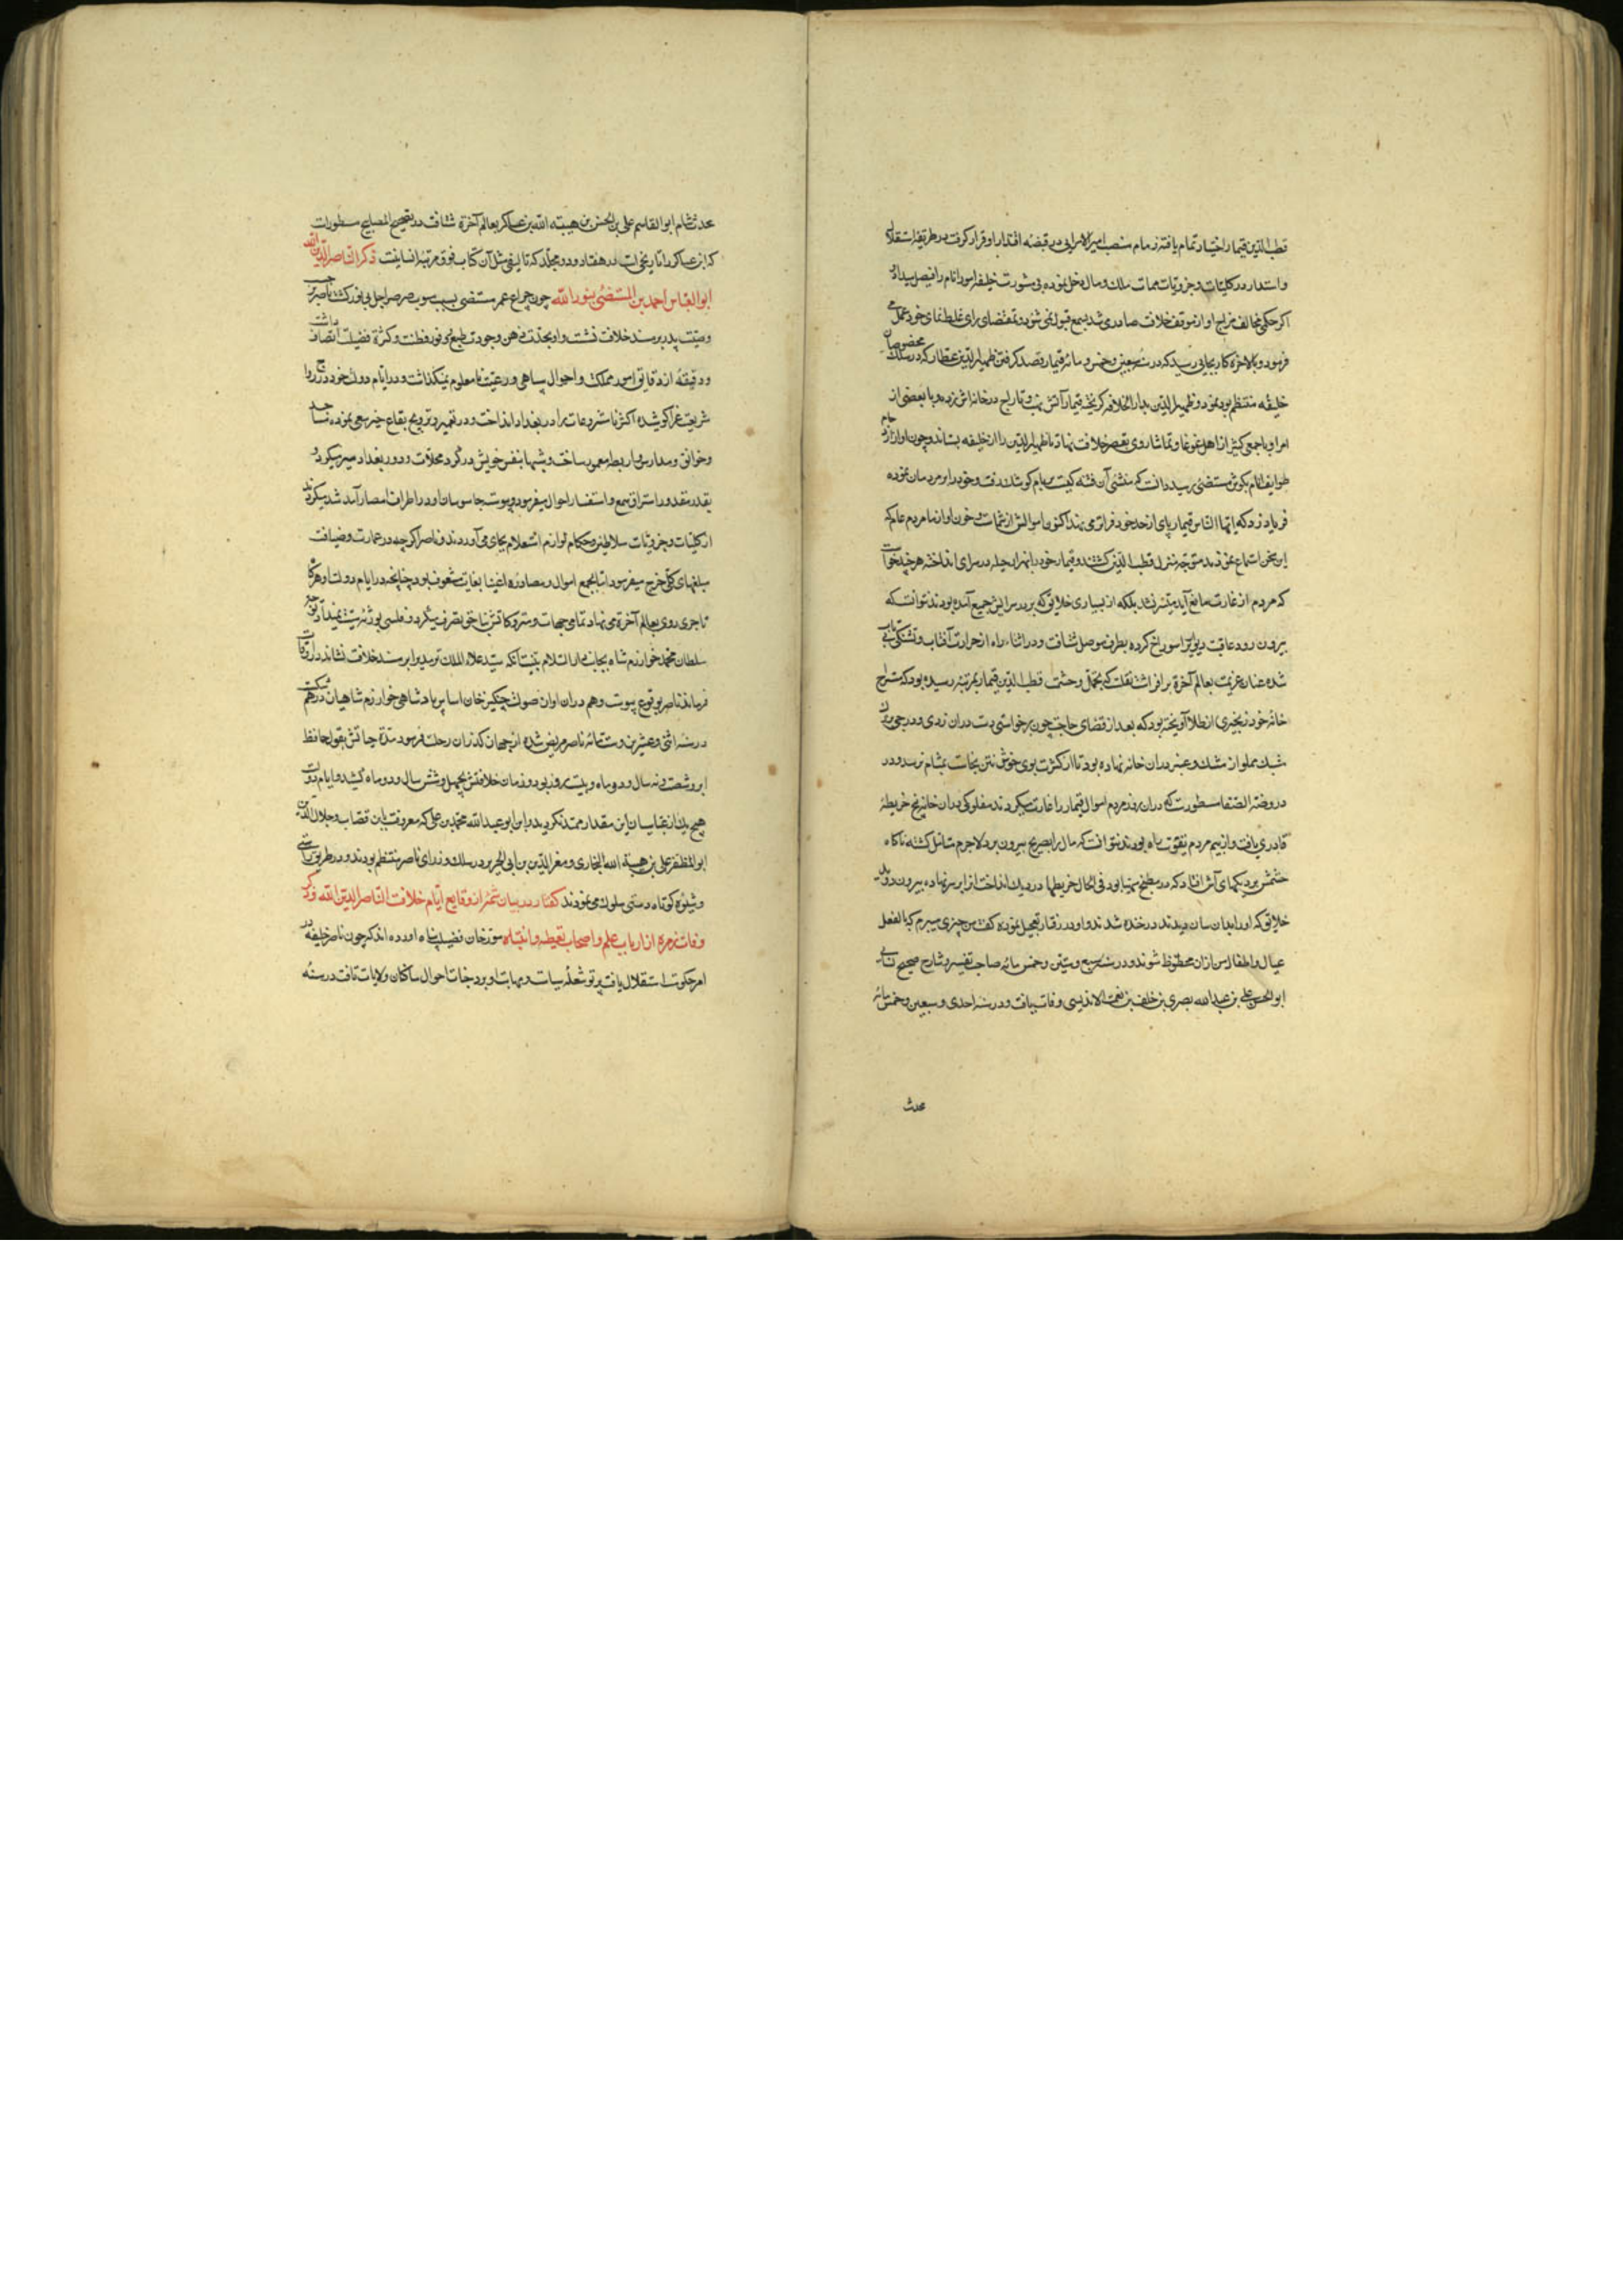 قطب الدین قیماز اختیار تمام یافته زمام منصب امیر الامرایی در قبضه اقتدار او قرار گرفت و در طریقه استقلال
و استبداد در کلیات و جزویات مهمات ملک و مال دخل نموده بی مشورت خلیفه امور انام را فیصل میداد و
اگر حکمی مخالف مزاج او از موقف خلافت صادر می شد بسمع قبول نمی شنود و بمقتضای رای غلط نمای خود عمل می
فرمود و بالاخره کار بجایی رسید که در سنه سبعین و خمس و مائه قیماز قصد گرفتن ظهیر الدین عطار که در سلک مخصوصان
خلیفه منتظم بود نمود و ظهیر الدین بدار الخلافه گریخته قیماز آتش نهب و تاراج در خانه اش زده و با بعضی از
امرا و با جمعی کثیر از اهل غوغا و تماشا روی بقصر خلافت نهاد تا ظهیر الدین را از خلیفه بستاند و چون آواز ازدحام
طوایف انام بگوش مستضی رسید دانست که منشی آن فتنه کیست بر بام کوشک رفت و خود را بر مردمان نموده
فریاد زد که ایها الناس قیماز پای از حد خود فراتر می نهد اکنون اموالش از شماست و خون او از ما مردم عام که
این سخن استماع نمودند متوجه منزل قطب الدین گشتند و قیماز خود را بهزار حیله در سرای انداخته هر چند خواست
که مردم از غارت مانع آید میسر نشد بلکه از بسیاری خلایق که بر در سرایش جمع آمده بودند نتوانست که
بیرون رود عاقبت دیواری را سوراخ کرده بطرف موصل شتافت و در اثناء راه از حرارت آفتاب و تشنگی بی تاب
شده عنان عزیمت بعالم آخرة برافراشت نقلست که تجمل و حشمت قطب الدین قیماز بمرتبه رسیده بود که مستراح
خانه خود زنجیری از طلا آویخته بود که بعد از قضای حاجت چون برخواستی دست در ان زدی و درجی بزرگ
مشبک مملو از مشک و عنبر در ان خانه نهاده بود تا از کثرت بوی خوش نتن نجاست بمشام نرسد و در
در روضة الصفا مسطورست که در ان روز مردم اموال قیماز را غارت میکردند مفلوکی در ان خانه پنج خریطه
قادری یافت و از بیم مردم بقوت که بر راه بودند نتوانست که مال را بصریح بیرون برد لاجرم متامل گشته ناگاه
چشمش بر دیگهای آش افتاد که در مطبخ مهیا بود فی الحال خریطها در دیگ انداخت و بر سر نهاده بیرون دوید
خلایق که او را بدان سان دیدند در خنده شدند و او در رفتار تعجیل نموده گفت من چیزی میبرم که بالفعل
عیال و اطفال من ازان محظوظ شوند و در سنه سبع و ستین و خمس مائه صاحب تفسیر و شارح صحیح نسایی
ابو الحسن علی بن عبد الله بصری بن خلف بن نعمة الاندلسی وفات یافت و در سنه احدی و سبعین و خمس مائه
محدث
محدث شام ابو القاسم علی بن الحسن بن هیبته الله بن عساکر بعالم آخرة شتافت در تصحیح المصابیح مسطورست
که ابن عساکر را تاریخی است در هفتاد و دو مجلد که تالیف مثل آن کتاب فوق مرتبه انسانیست ذکر الناصر لدین الله
ابو العباس احمد بن المستضئ بنور الله چون چراغ عمر مستضی بسبب هبوب صرصر اجل بی نور گشت ناصر بر حسب
وصیت پدر بر مسند خلافت نشست و او بحدت ذهن وجودت طبع و وفور فطنت و کثرة فضیلت اتصاف داشت
و دقیقه از دقایق امور مملکت و احوال سپاهی و رعیت نامعلوم نمیگذاشت و در ایام دولت خود در رواج
شریعت غرا کوشیده اکثر نا مشروعات را در بغداد انداخت و در تعمیر و ترویج بقاع خیر سعی نموده مساجد
و خوانق و مدارس و اربطه معمور ساخت و شبها بنفس خویش در گرد محلات و دور بغداد سیر میکرد و
بقدر مقدور استراق سمع و استفسار احوال میفرمود و پیوسته جاسوسان او در اطراف امصار آمد شد میکردند
از کلیات و جزویات سلاطین و حکام لوازم استعلام بجای می آوردند و ناصر اگر چه در عمارت و ضیافت
مبلغهای کلی خرج میفرمود اما بجمع اموال و مصادره اغنیا بغایت مشعوف بود چنانچه در ایام دولت او هرگاه
تاجری روی بعالم آخرة می نهاد تمامی جهات و متروکاتش بناحق تصرف میکرد و فلسی بورثه میت نمیداد و توجه
سلطان محمد خوارزم شاه بجانب دار السلام بنیت آنکه سید علاء الملک ترمدی را بر مسند خلافت نشاند در اوقات
فرماندهی ناصر بوقوع پیوست و هم در ان اوان صولت چنگیز خان اساس پادشاهی خوارزم شاهیان درهم شکست
در سنه اثنی و عشرین و ستمائه ناصر مریض شده از جهان گذران رحلت فرمود مدة حیاتش بقول حافظ
ابرو شصت و نه سال و دو ماه و بیست روز بود و زمان خلافتش بچهل و شش سال و دو ماه کشید و ایام دولت
هیچ یک از عباسیان این مقدار ممتد نگردید و ابن ابو عبد الله محمد بن علی که معروفست بابن قصاب و جلال الدین
ابو المظفر علی بن هیبته الله البخاری و معز الدین بن ابی الحریر در سلک وزرای ناصر منتظم بودند و در طریق راستی
و شیوه کوتاه دستی سلوک می نمودند گفتار در بیان شمه از وقایع ایام خلافت الناصر لدین الله و ذکر
وفات زمره از ارباب علم و اصحاب تعیظه و انتباه مورخان فضیلت پناه آورده اند که چون ناصر خلیفه در
امر حکومت استقلال یافت پرتو شعله سیاست و مهابت او بر وجنات احوال ساکنان ولایات تافت در سنه